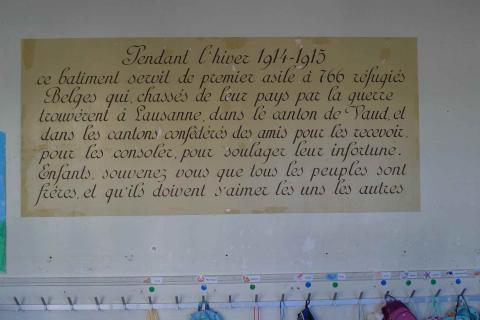 Pendant l'hiver 1914-1915
ce batiment servit de premier asile à 766 réfugiés
Belges qui, chassés de leur pays par la guerre
trouvèrent à Lausanne, dans le canton de Vaud, et
dans les cantons confédérés des amis pour les recevoir,
pour les consoler, pour soulager leur infortune.
Enfants, souvenez vous que tous les peuples sont
frères, et qu'ils doivent s'aimer les uns les autres